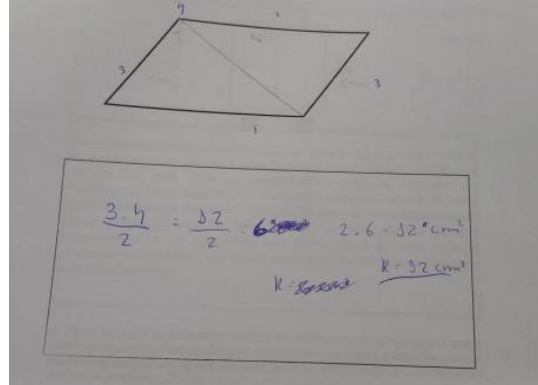 4
3
3
3 · 4 / 2 = 12 / 2 = 6 2 · 6 = 12 cm²
R: 
R: 12 cm²